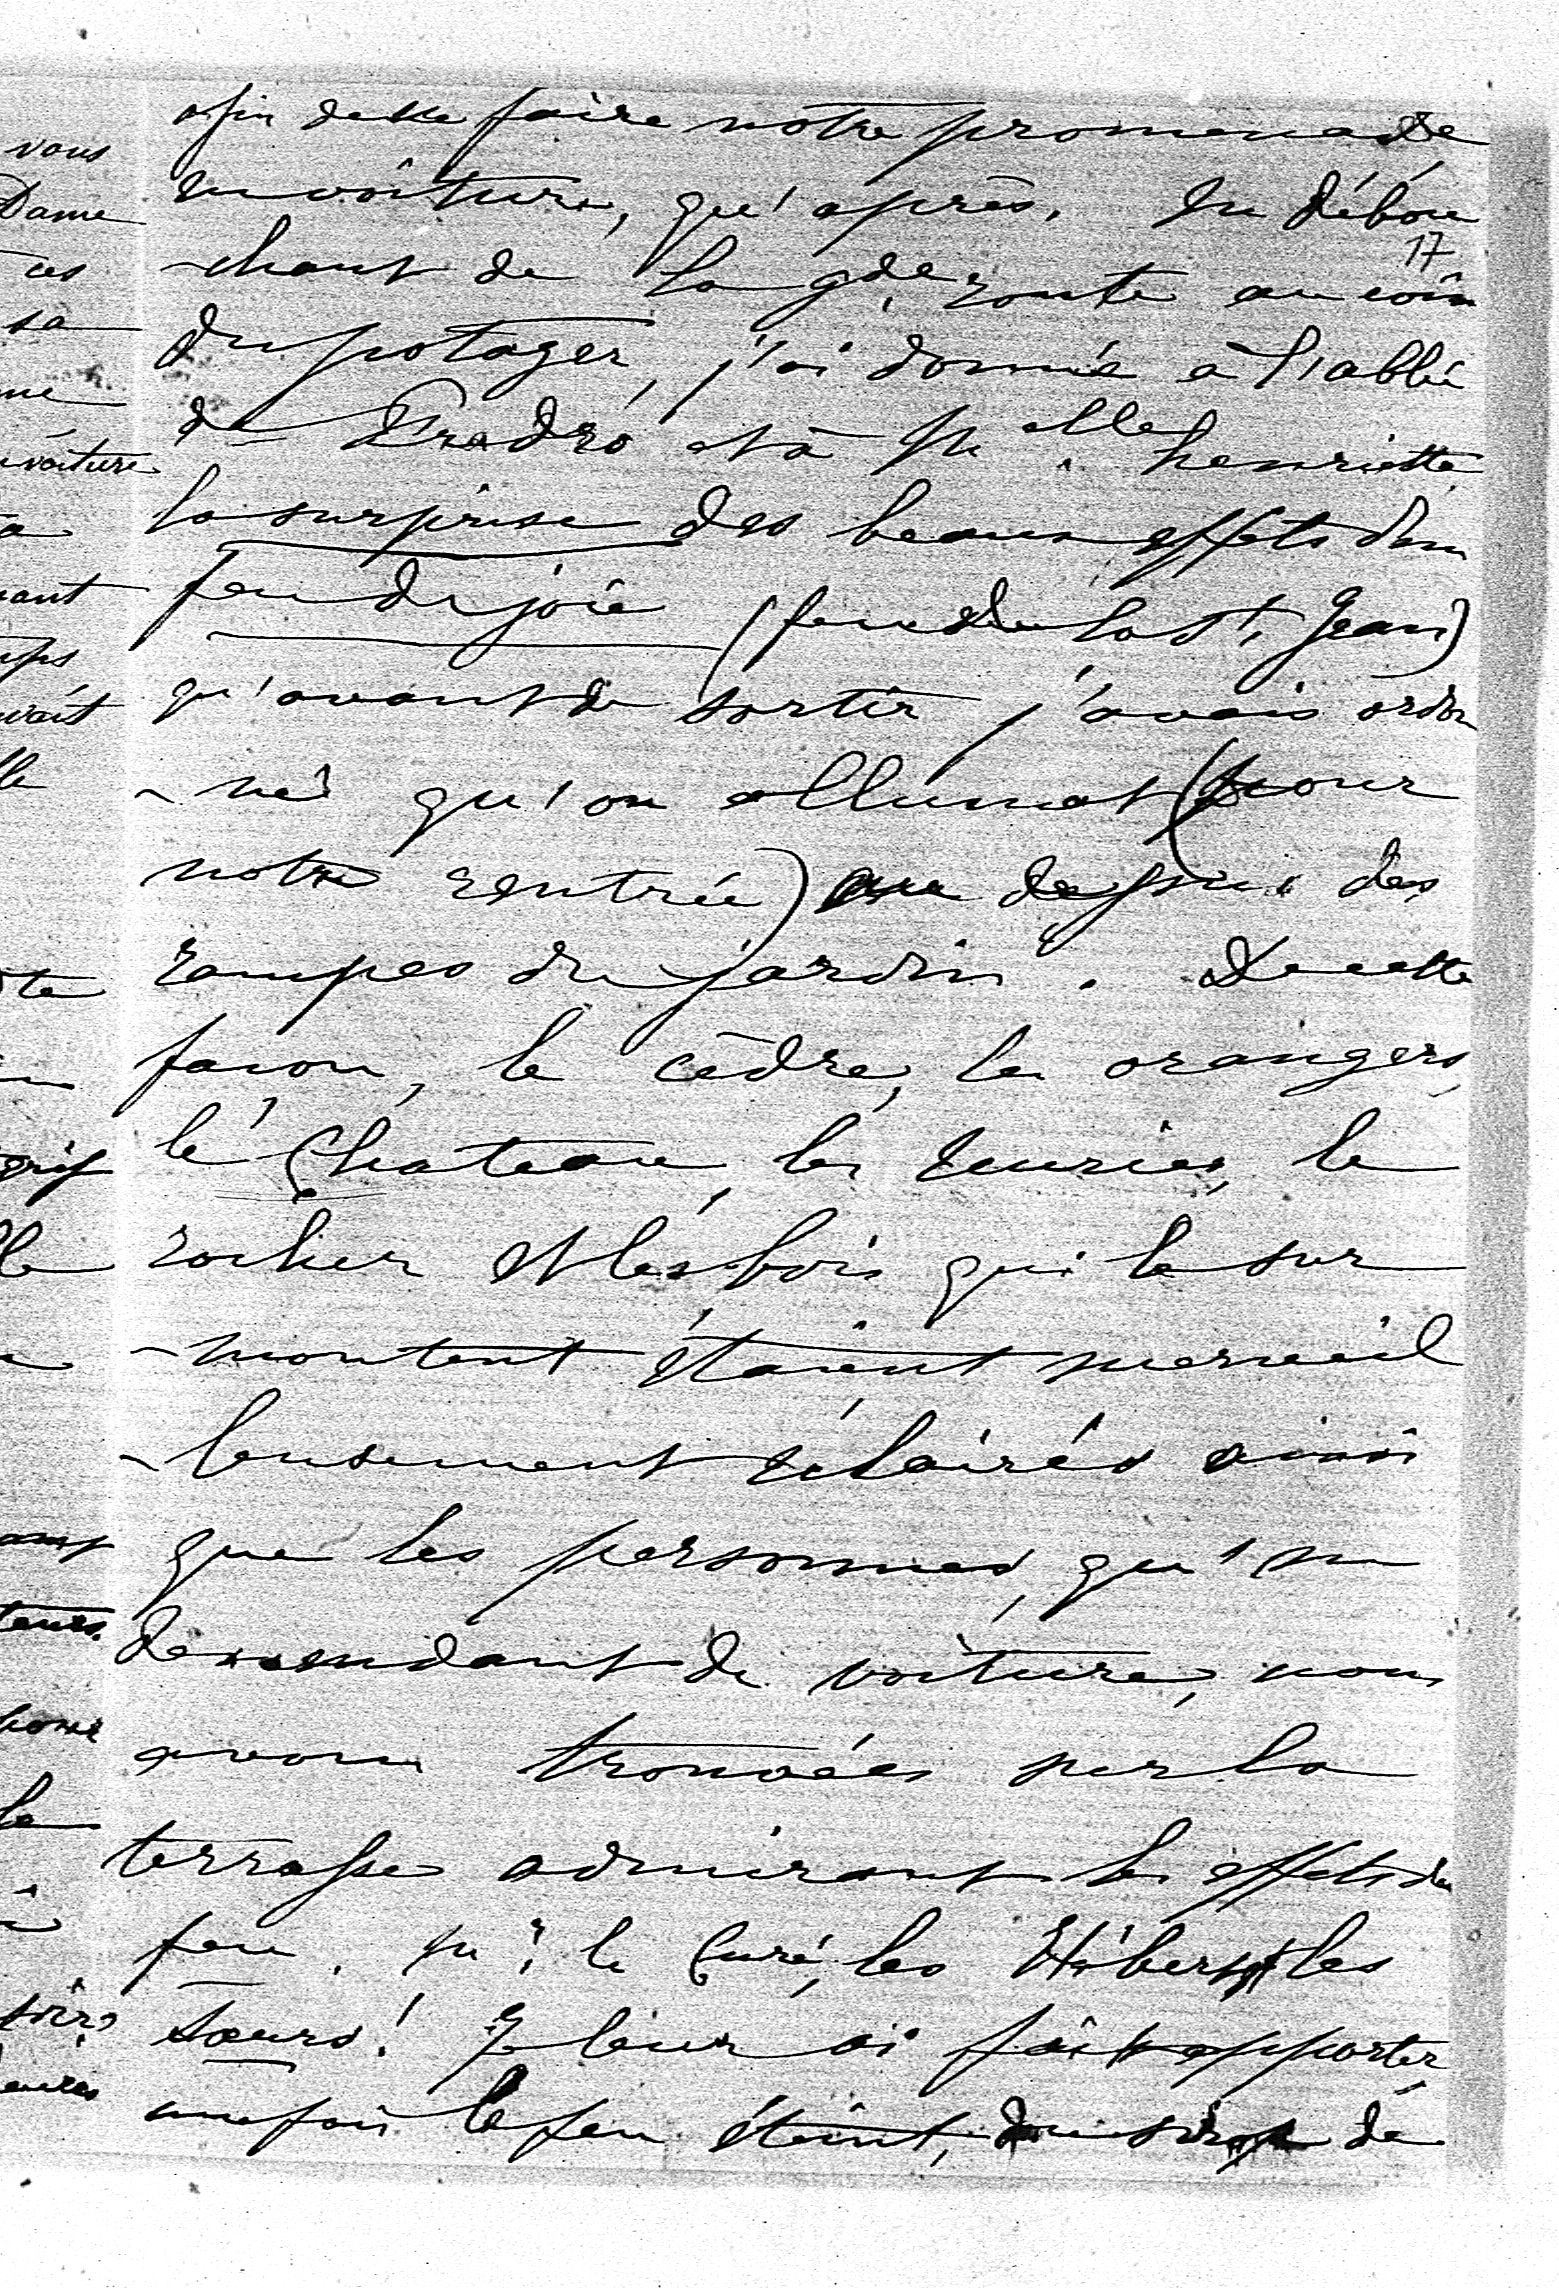 afin de ne faire notre promenade
en voiture, qu'après. En débou
17
-chant de la gde route au coin
du potager, j'ai donné à l'abbé
de Pradró et à Melle henriette
la surprise des beaux effets d'un
feu de joie (feu de la St. Jean)
qu'avant de sortir j'avais ordon
-né qu'on allumat (pour
notre rentrée) au dessus des
rampes du jardin. De cette
facon, le cèdre, les orangers,
le Chateau, les écuries, le
rocher et les bois qui le sur
-montent étaient merveil
-leusement éclairés ainsi
que les personnes, qu'en
descendant de voiture, nous
avons trouvées sur la
terrasse admirant les effets du
feu. Mr. le Curé, les Hébert, les
sœurs! Je leur ai fait apporter,
une fois le feu éteint, du sirop de
vous
Dame
ces
sa
voiture
vant
vait